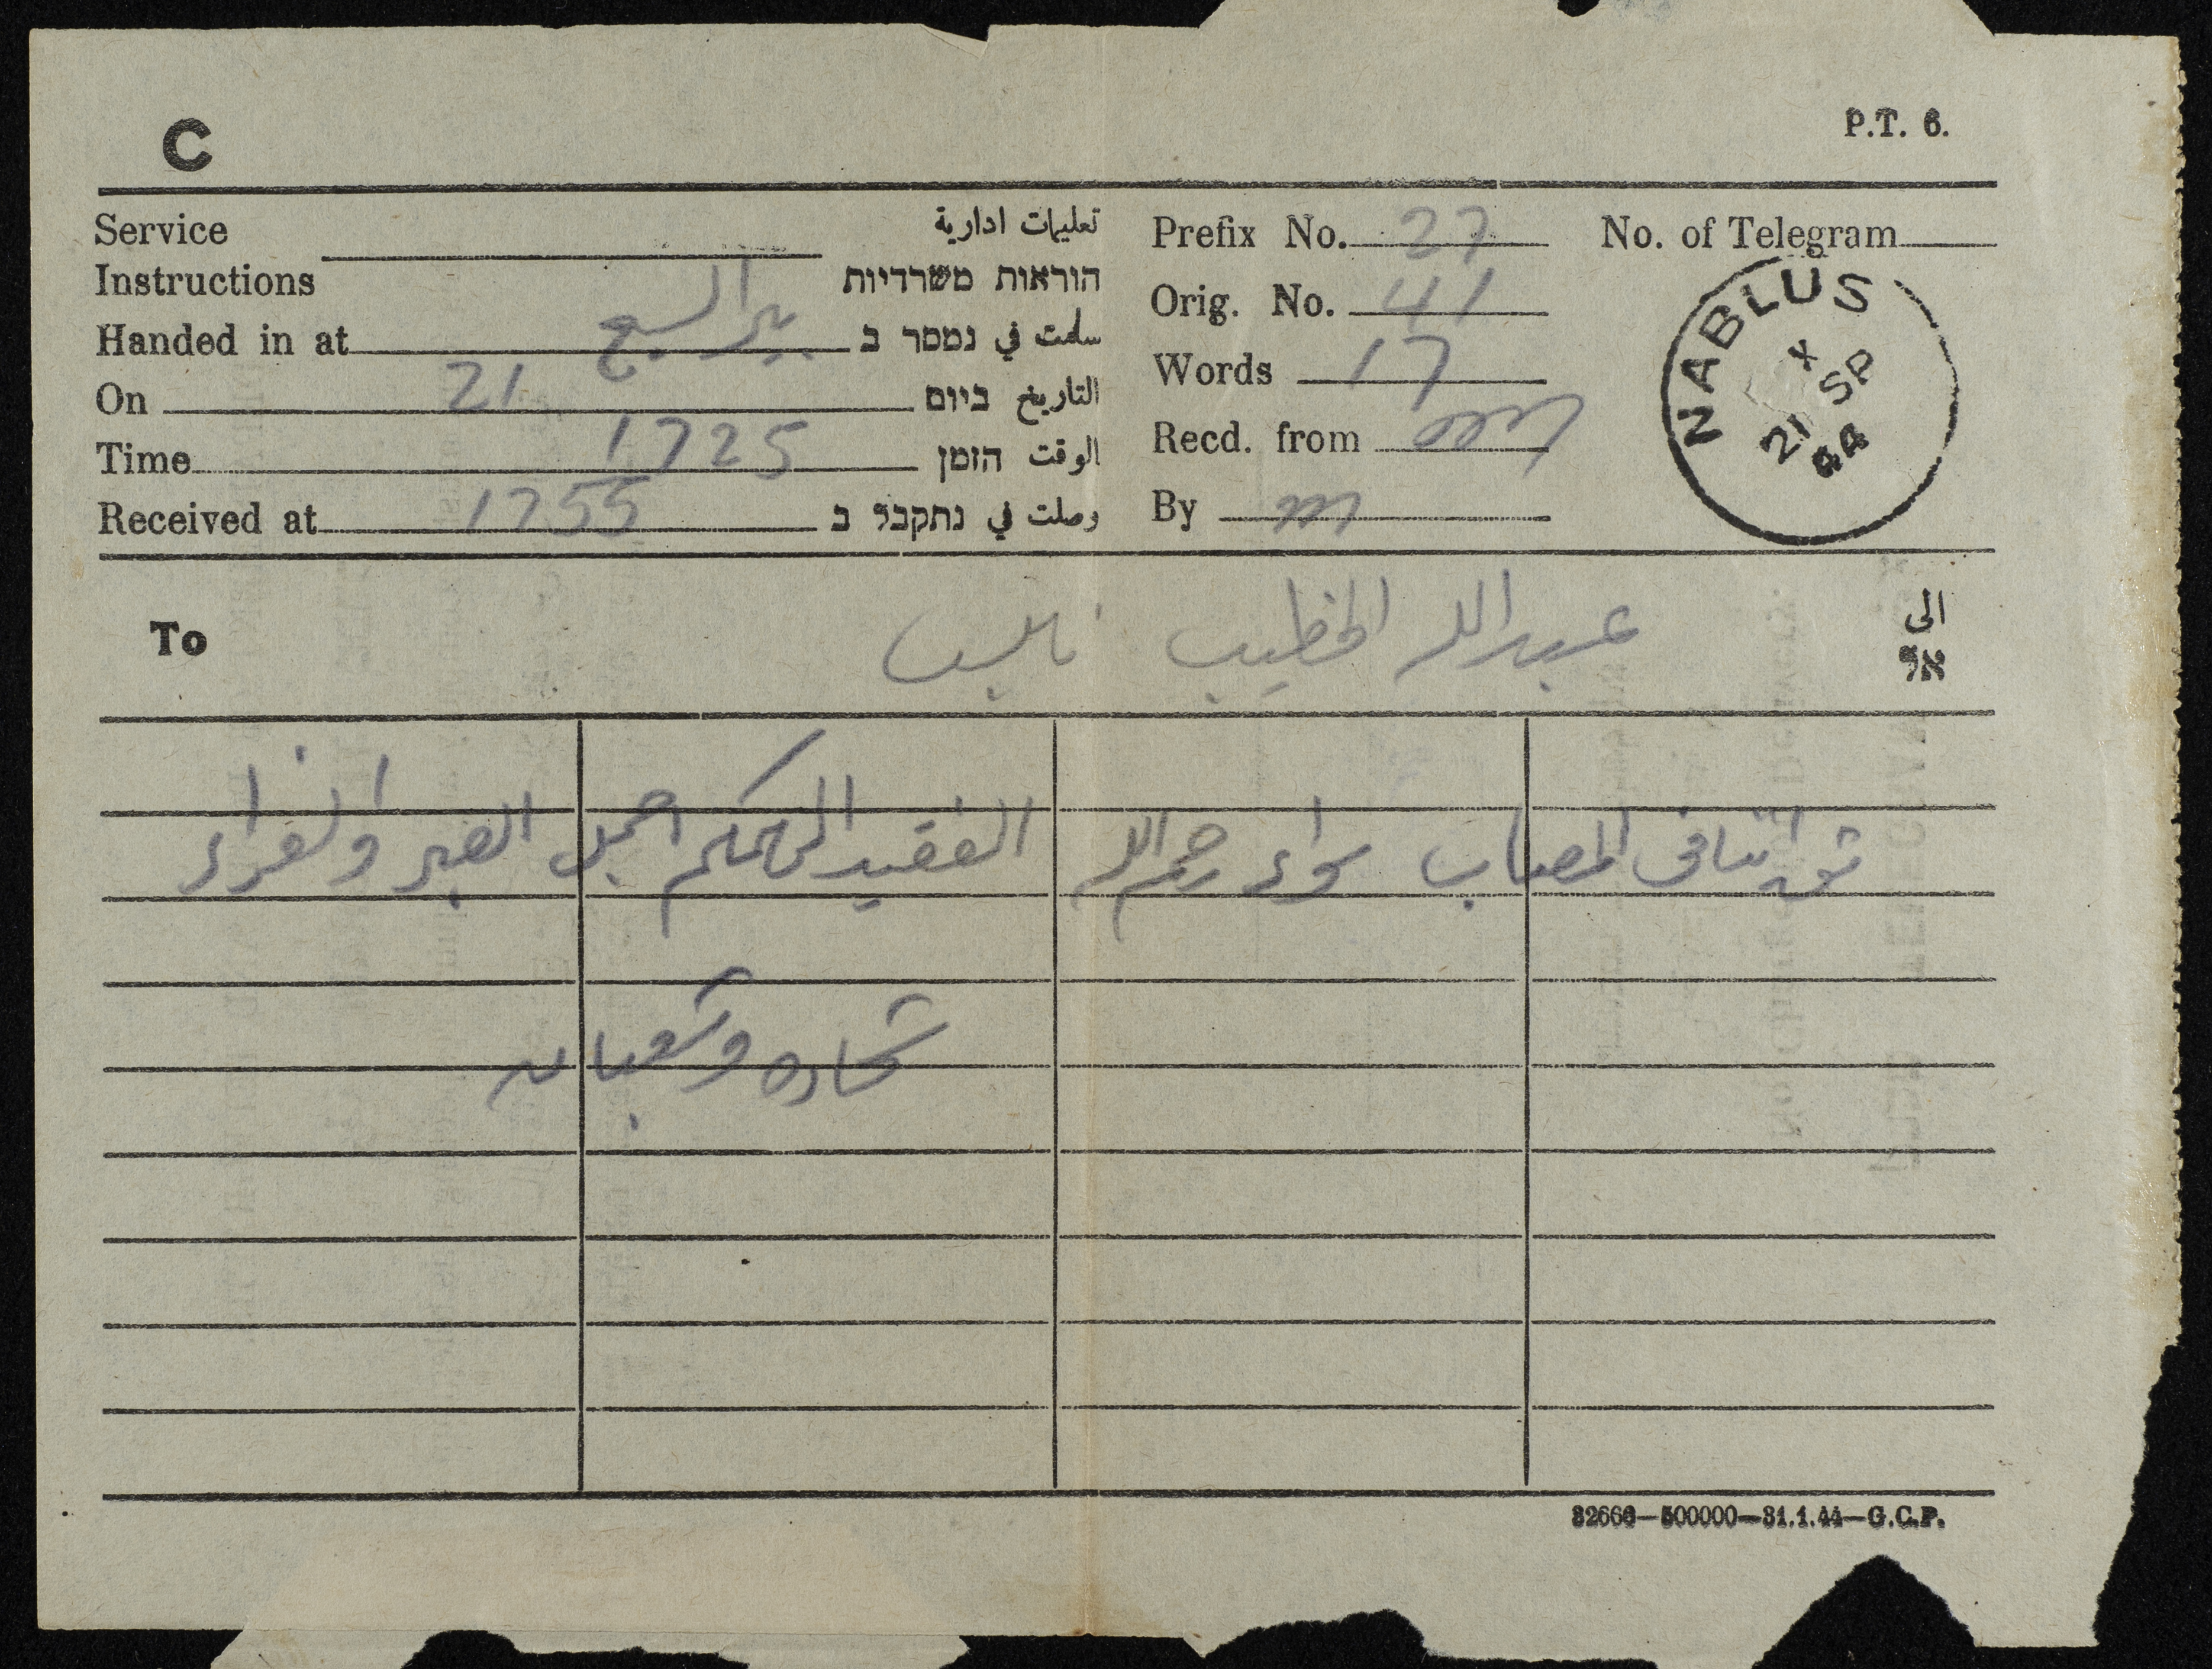 C
P.T. 6.
Service Instructions تعليمات ادارية הוראות משרדיות
Prefix No. 27
No. of Telegram
Orig. No. 41
Handed in at بير السبع سلمت في נמסר ב
Words 17
On 21 التاريخ ביום
Recd. from
Time 1725 الوقت הזמן
By m
Received at 1755 وصلت في נתקבל ב
NABLUS
X
21 SP
44
To عبدالله الخطيب نابلس الى אל
المصاب سواء رحم الله الفقيد الهمكم اجمل الصبر والعزاء
شحاده وشعبان
32666—500000—31.1.44—G.C.P.